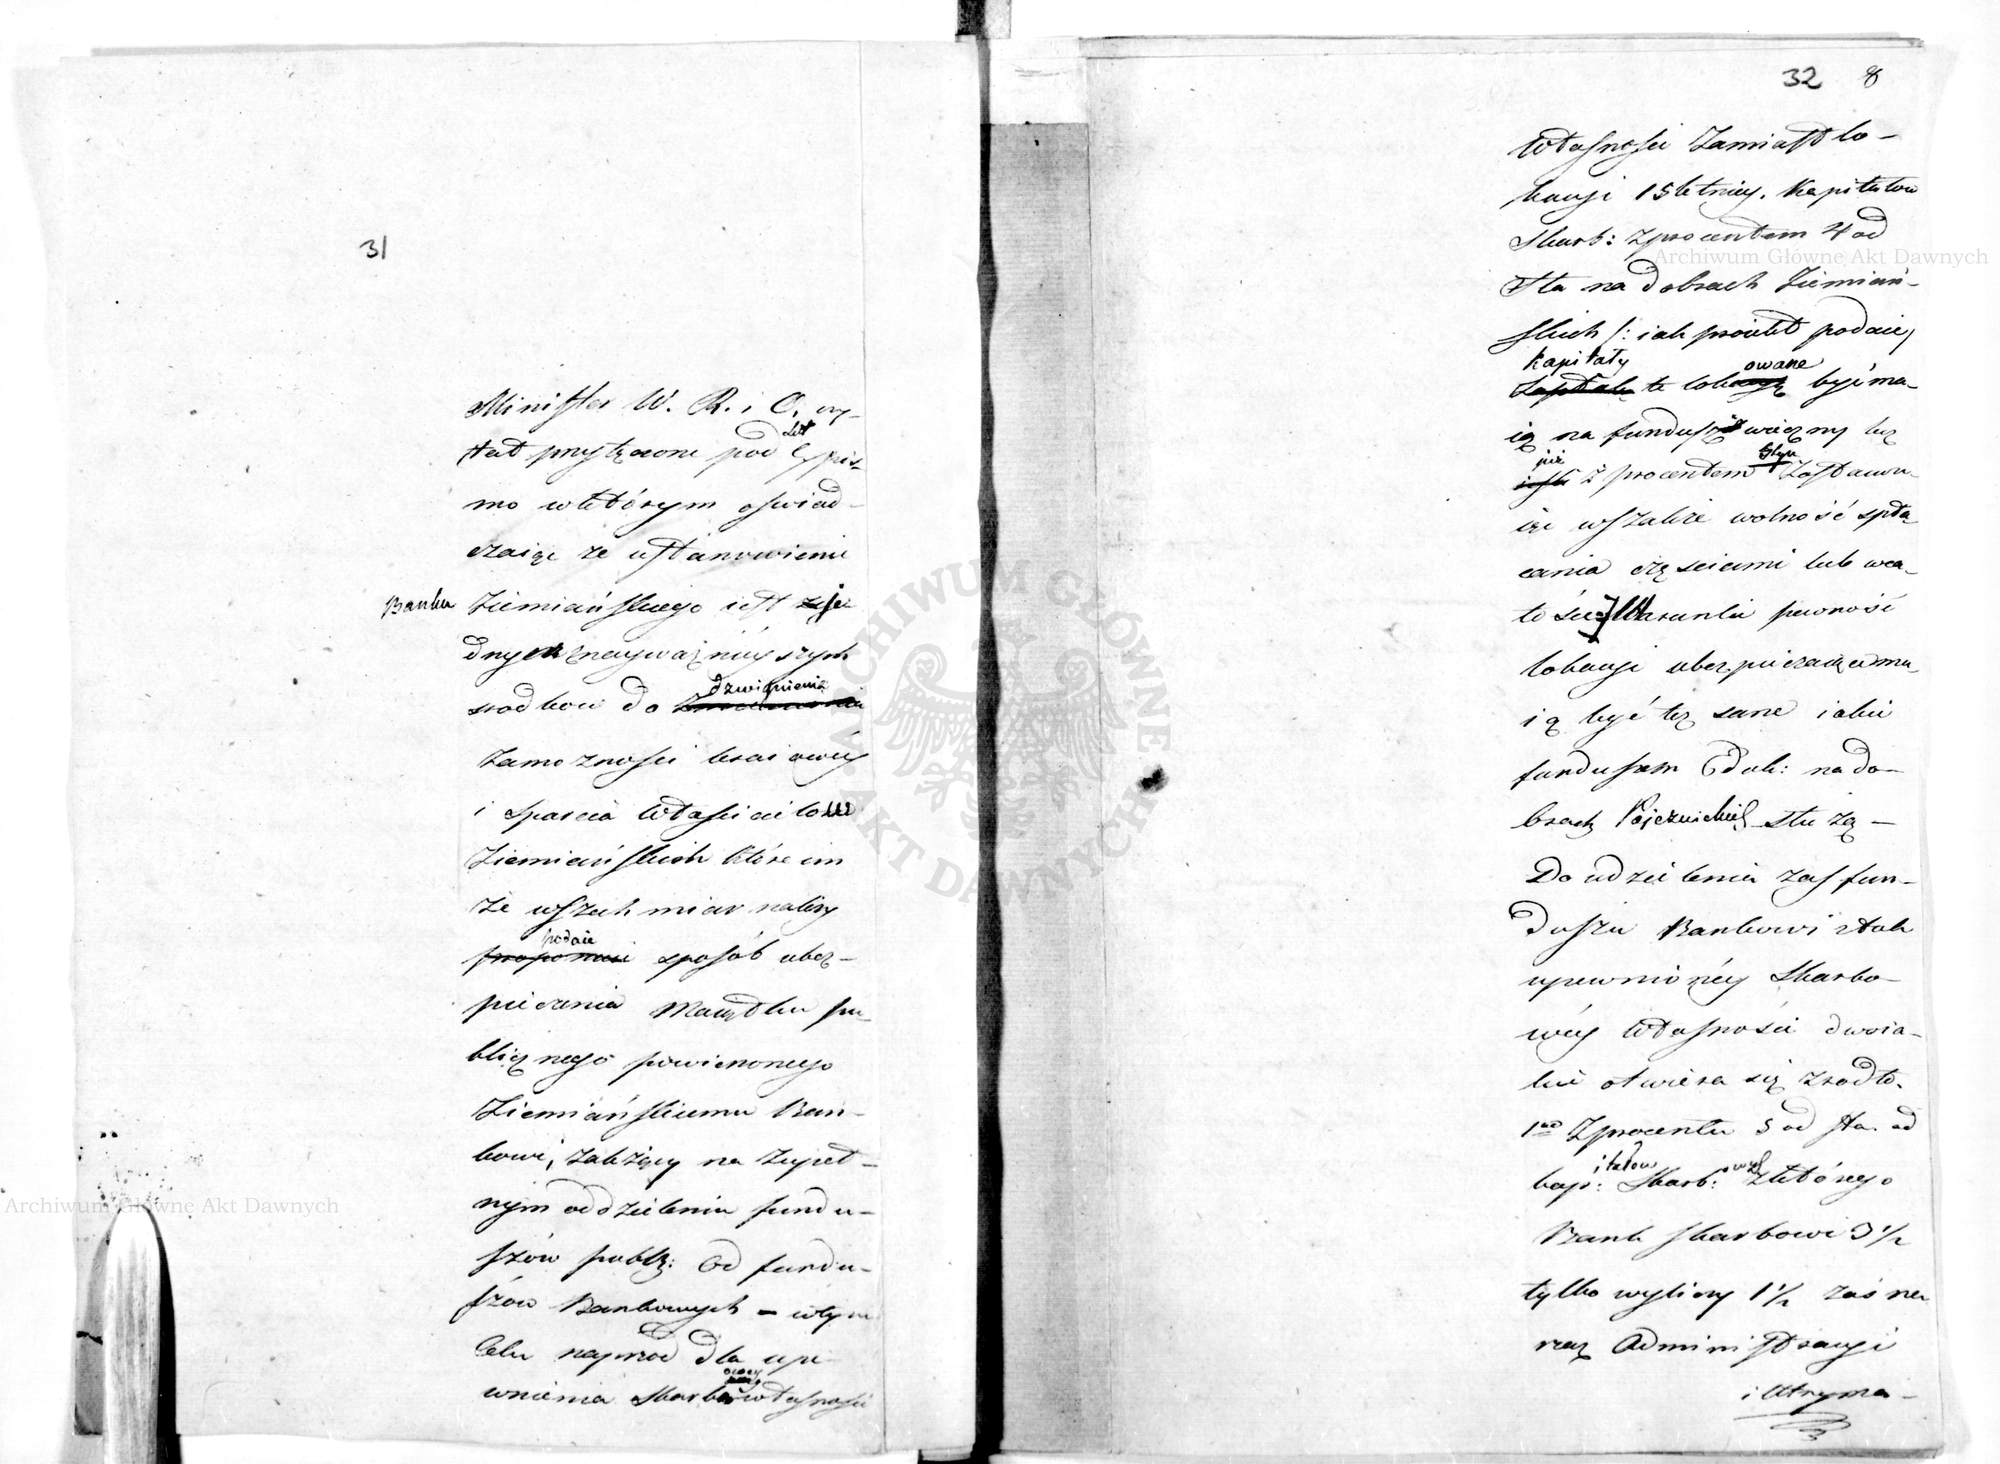 31
Minister W. R. i O. czy-
tał przyłączone pod Lit: C pis-
mo w którym oświad-
czaiąc że ustanowienie
Banku Ziemiańskiego iest ie-
dnym z nayważnieyszych
srodków do dzwignienia
zamożności kraiowéy
i sparcia właścicielow
Ziemiańskich które im
ze wszech miar należy
proponuie podaie sposób ubez-
pieczenia Maiątku pu-
blicznego powierzonego
Ziemiańskiemu Ban-
kowi, zależący na zupeł-
nym oddzieleniu fundu-
szów publcz: od fundu-
szów Bankowych – w tym
Celu naprzod dla upe-
wnienia Skarbowey własności
32 8
własności zamiast lo-
kacyi 15 letniey. Kapitałow
Skarb: z procentem 4 od
Sta na dobrach Ziemiań-
skich /: iak proiekt podaie/
Kapitały te lokowane być ma-
ią na fundusz wieczny lecz
z procentem tym zostawu-
iąc wszakże wolność spła-
cania częściami lub wca-
łości. Warunki pewność
lokacyi ubezpieczaiące ma-
ią być też same iakie
funduszom Eduk: na do-
brach Pojezuickich służą –
Do udzielenia zaś fun-
duszu Bankowi z tak
upewnionéy Skarbo-
wéy własności dwoia-
kie otwiera się zrodło.
1mo Z procentu 5 od sta. od
kapitałow Skarb:owych z którego
Bank skarbowi 3 1/2
tylko wyliczy 1 1/2 zaś na
rzecz Administracyi
i utryma-
Archiwum Główne Akt Dawnych
Archiwum Główne Akt Dawnych
ARCHIWUM GŁÓWNE AKT DAWNYCH